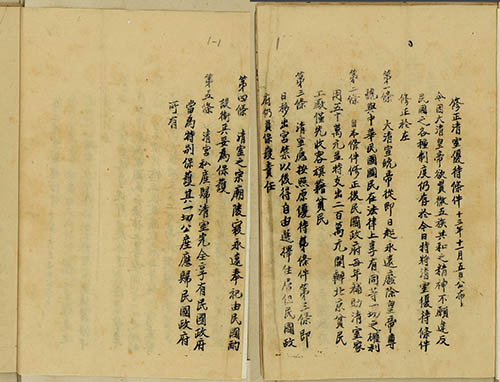 1
修正清室優待條件 十三年十一月五日公布
今因大清皇帝欲貫徹五族共和之精神不願違反
民國之各種制度仍存於今日特將清室優待條件
修正於左
第一條 大清宣統帝從即日起永遠廢除皇帝尊
號與中華民國國民在法律上享有同等一切之權利
第二條 自本條件修正後民國政府每年補助清室家
用五十萬元並特支出二百萬元開辦北京貧民
工廠儘先收容旗籍貧民
第三條 清室應按照原優待條件第三條即
日移出宮禁以後得自由選擇住居但民國政
府仍負保護責任
1-1
第四條 清室之宗廟陵寢永遠奉祀由民國酌
設衛兵妥為保護
第五條 清室私產歸清室完全享有民國政府
當為特別保護其一切公產應歸民國政府
所有